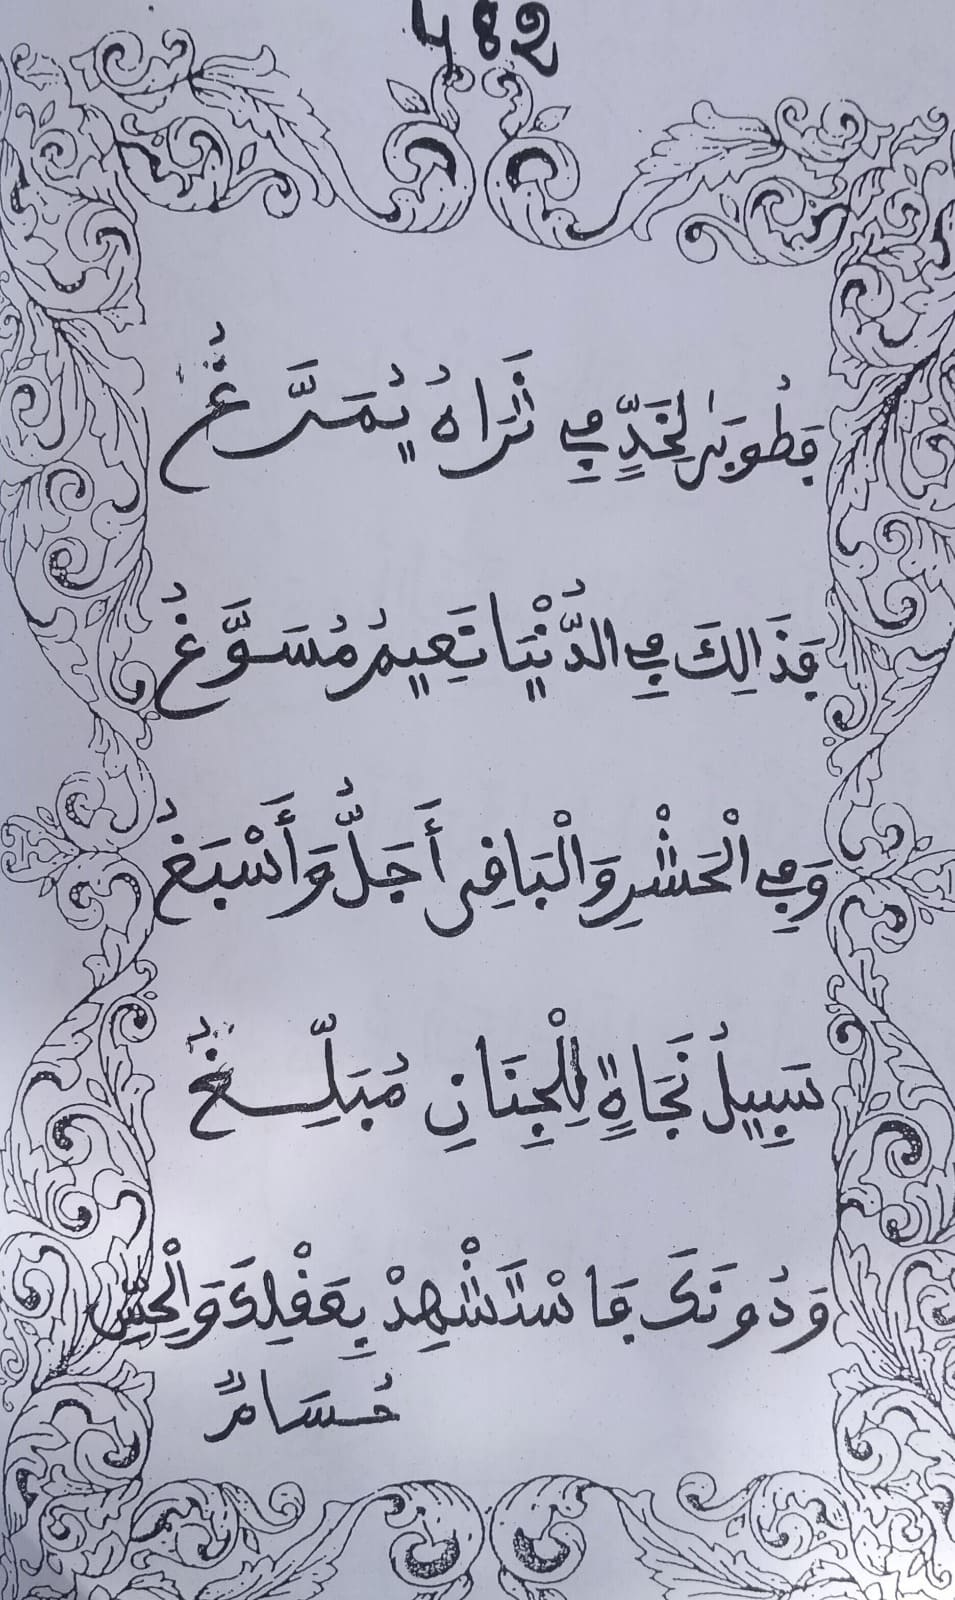 482
فَطُوبَىٰ لِخَدٍّ فِي ثَرَاهُ يُمَرَّغُ
فَذَالِكَ فِي الدُّنْيَا نَعِيمٌ مُسَوَّغُ
وَفِي الْحَشْرِ وَالْبَاقِي أَجَلُّ وَأَسْبَغُ
سَبِيلُ نَجَاةٍ لِلْجِنَانِ مُبَلِّغُ
وَدُونَكَ فَاسْتَشْهِدْ بِعَقْلِكَ وَالْحِسِّ
حُسَامٌ